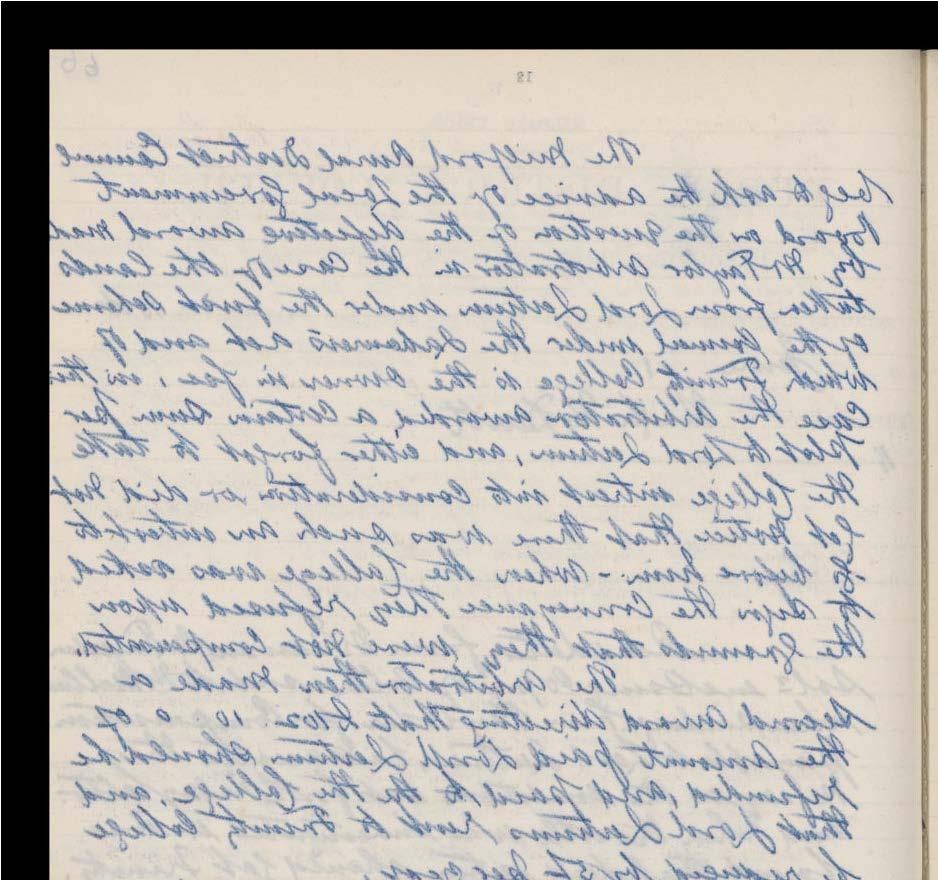 The Milford Rural District Council
beg to ask the advice of the Local Government
Board on the question of the defective award made
by Mr Taylor Arbitrator in the case of the lands
taken from Lord Leitrim under the first scheme
of the Council under the Labourers Act and of
which Trinity College is the owner in fee, in this
case the Arbitrator awarded a certain sum per
plot to Lord Leitrim, and either forgot to take
the College interest into consideration or did not
get notice that there was such an interest to
before him - When the College was asked
to sign the Conveyance they refused upon
the Grounds that they were not compensated.
The Arbitrator then made a
second award directing that £102. 10. 0 of
the amount paid Lord Leitrim should be
refunded, and paid to the College, and
that Lord Leitrims rent to Trinity College
reduced by per year.